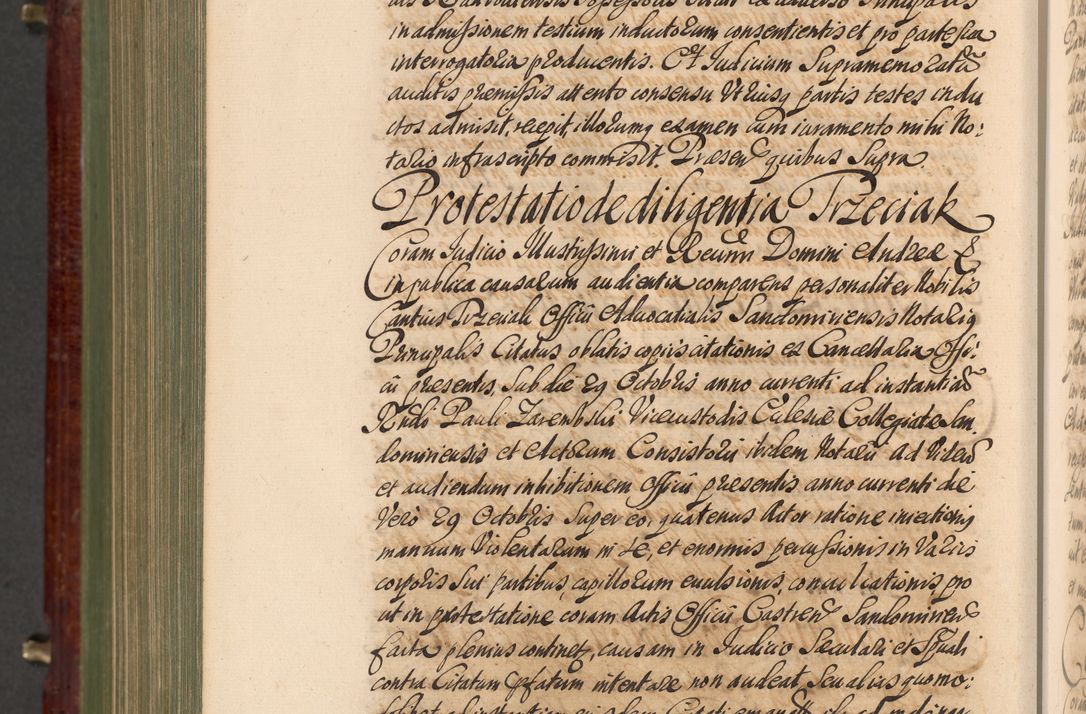 in admissionem testium inductorum consentientis et pro parte sua
interrogatoria producentis. Et Judicium Supramemoratũ
auditis premissis attento consensu Utriusq partis testes indu
ctos admisit, recepit, illorumq examen cum iuramento mihi No:
tario infrascripto commisit. Præsen quibus Supra
Protestatio de diligentia Trzeciak
Coram Judicio Illustrissimi et Rеũm Domini Andreæ &
in publica causarum audientia comparens personaliter Nobilis
Cantius Trzeciak Officii Advocatialis Sandomiriensis Notariq
Principalis Citatus oblatis copiis citationis ex Cancellaria Offi:
cii presentis, Sub die 29 Octobris anno currenti ad instantiã
Rndi Pauli Zarembski Vicecustodis Eclesiæ Collegiatæ San.
domiriensis et Actorum Consistorii ibidem Notarii ad Videñ
et audiendum inhibitionem Officii presentis anno currenti die
Vero 29 Octobris Super eo, quatenus Actor ratione iniectionis
manuum Violentarum in se, et enormis percussionis in Variis
corporis Sui partibus, capillorum evulsionis, conculcationis, pro
ut in protestatione coram Actis Officii Castren Sandomirien
facta plenius continet, causam in Judicio Sæculari et Spũali
contra Citatum p̃fatum intentare non audeat, Seu alias quomo: